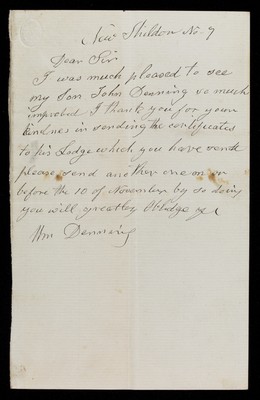 New Shildon No 9
Dear Sir
I was much pleased to see
my Son John Denning so much
improbed I thank you for your
kindnes in sending the certificates
to his Lodge which you have sende
please send another one on or
before the 10 of November by so doing
you will greatley Oblidge
Wm Denning